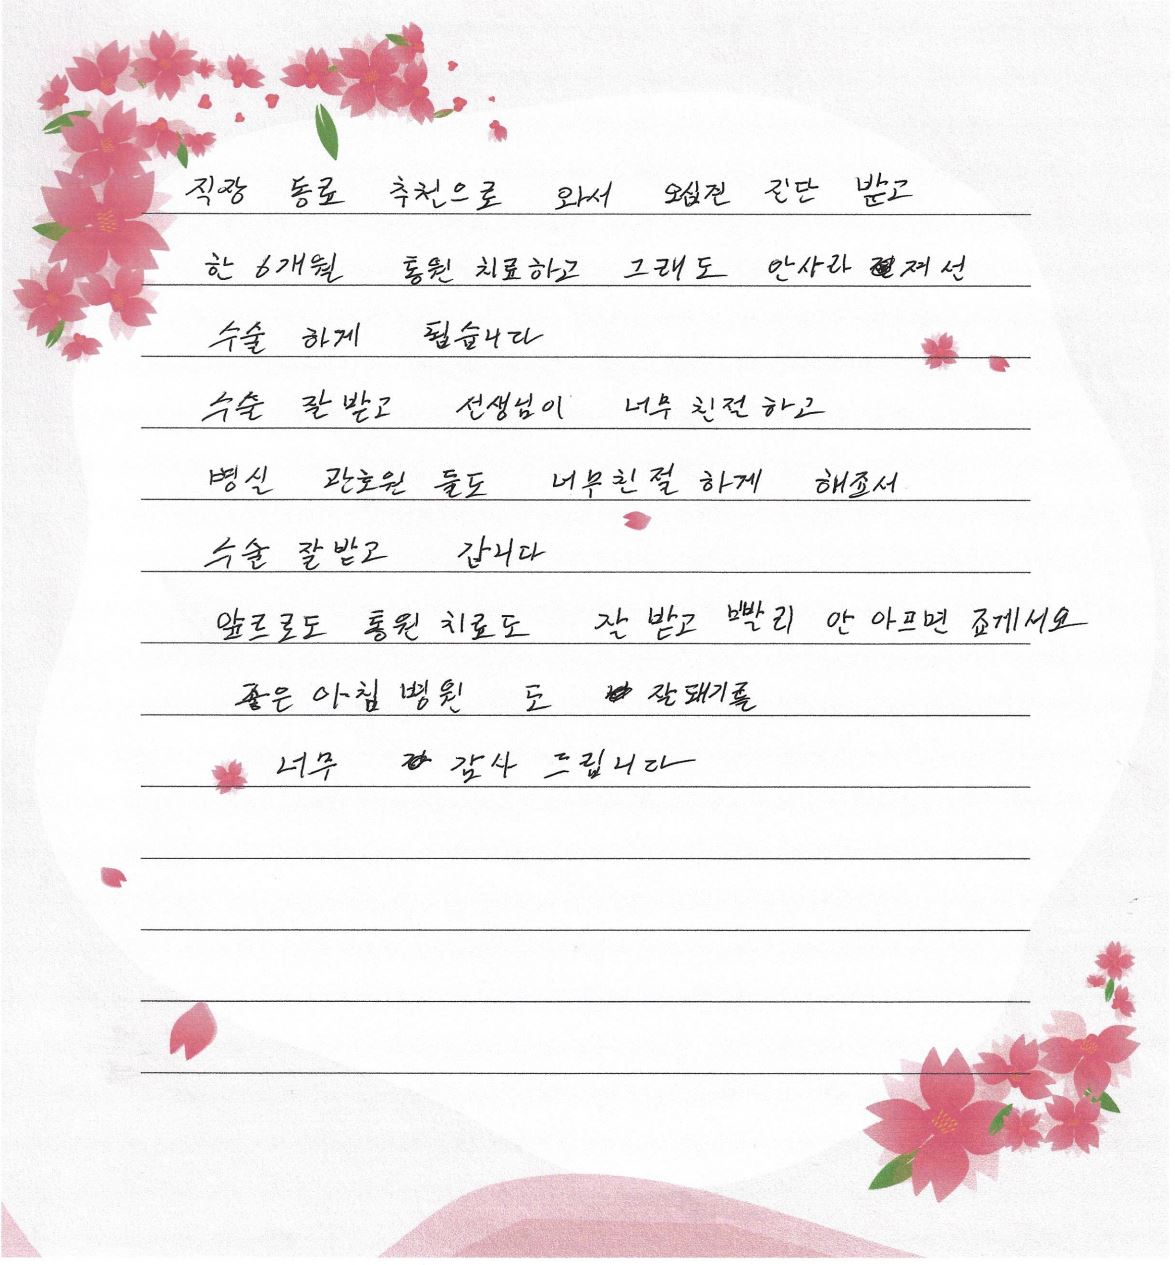 직장 동료 추천으로 와서 오십견 진단 받고
한 6개월 통원 치료하고 그래도 안사라 져서
수술 하게 됩습니다
수술 잘 받고 선생님이 너무 친절 하고
병실 관호원 들도 너무 친절 하게 해죠서
수술 잘 받고 갑니다
앞르로도 통원 치료도 잘 받고 빨리 안 아프면 죠게서요
좋은 아침 병원 도 잘돼기를
너무 감사 드립니다